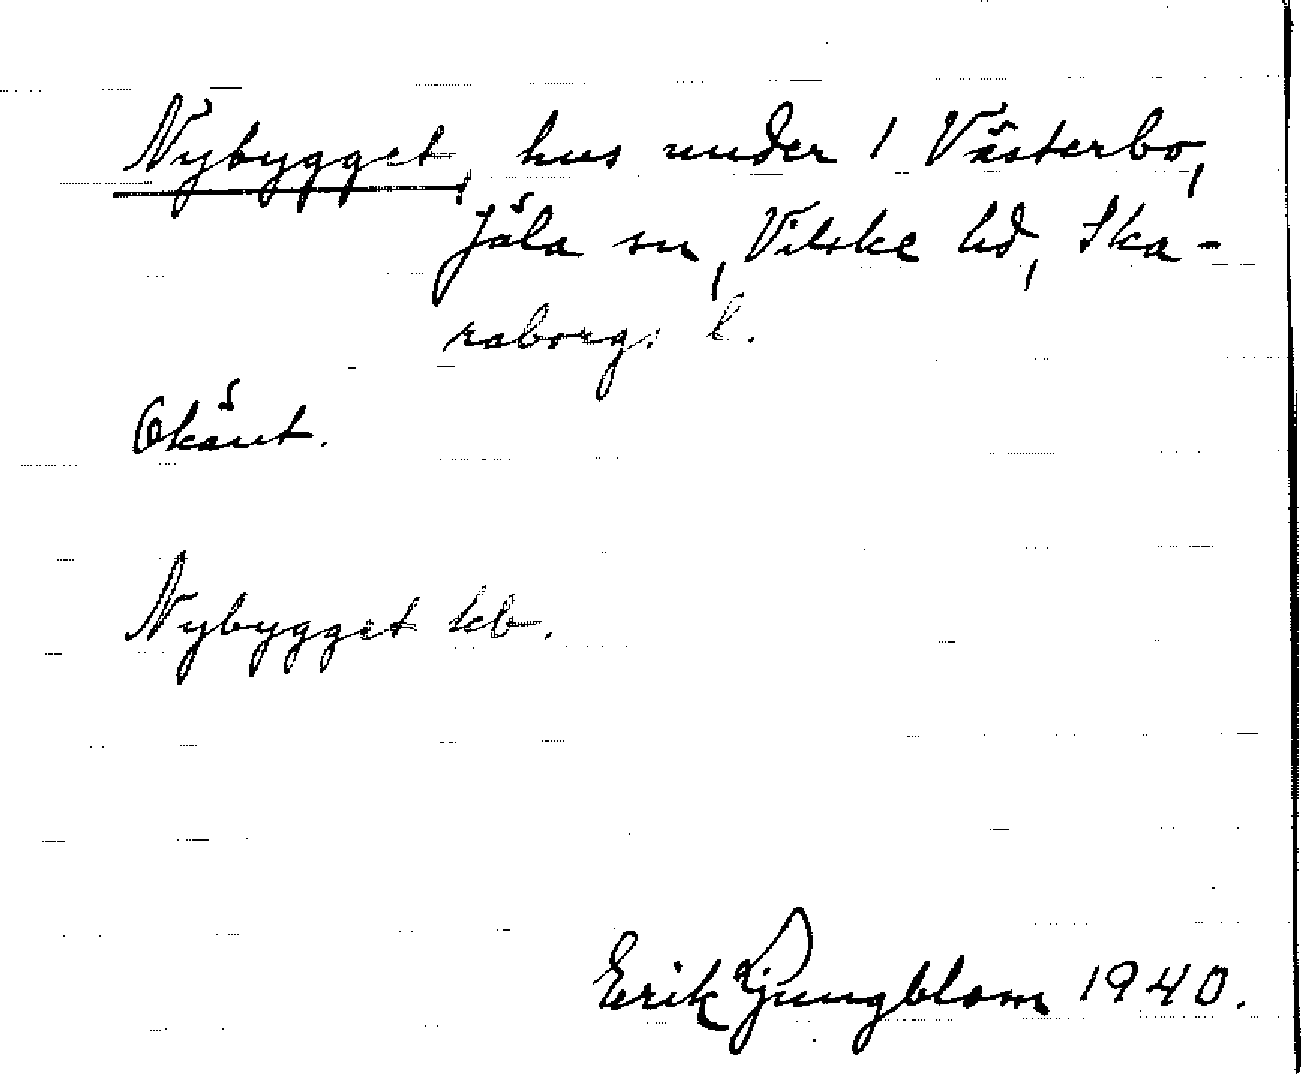 Nybygget, hus under 1 Västerbo,
Jäla sn, Vilske hd, Ska-
raborgs l.
Okänt.
Nybygget kb.
Erik Ljungblom 1940.